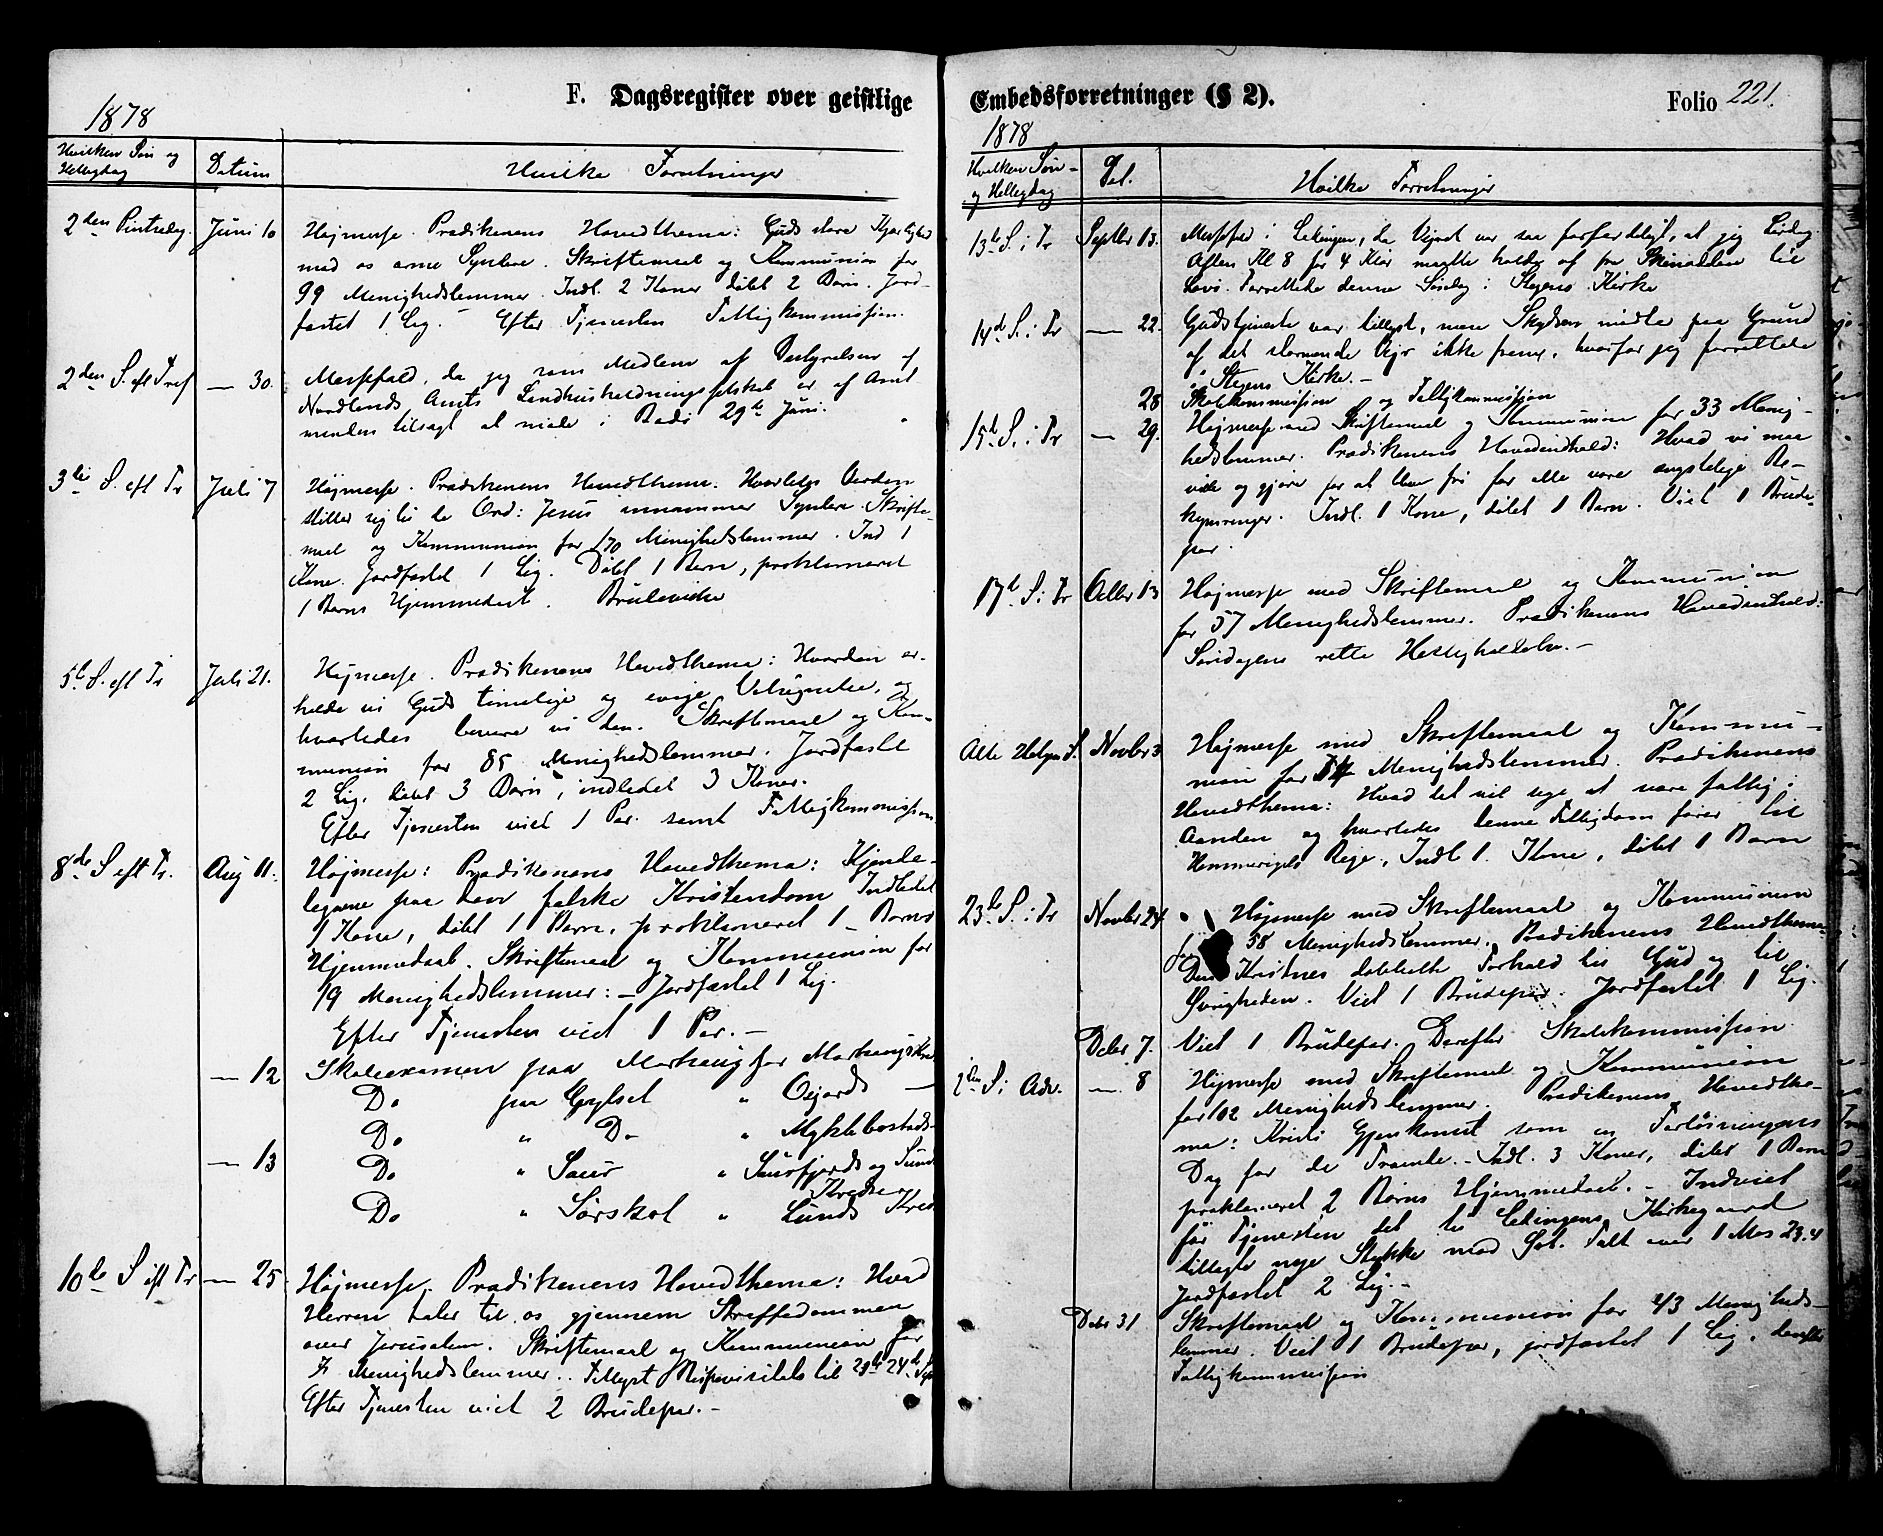 F. Dagsregister over geistlige
1878
Hvilken Søn og
Helligdag
Datum
Hvilke Forretninger
2den Pintsedag. Juni 10 Højmesse. Prædikenens Hovedthema: Guds store Kjærlighed
mod os arme Syndere. Skriftemaal og Kommunion for
99 Menighedslemmer. Indl. 2 Koner døbt 2 Børn. Jord-
fæstet 1 Lig. Efter Tjenesten Fattigkommission.
2den S. eft Tref — 30. Messefald, da jeg som Medlem af Bestyrelsen af
Nordlands Amts Landhusholdningsselskab er af Amt
manden tilsagt at møde i Bodø 29de Juni.
3die S. eft Tr Juli 7 Højmesse. Prædikenens Hovedthema. Hvorledes Verden
stiller sig til de Ord: Jesus annammer Syndere. Skrifte-
maal og Kommunion for 170 Menighedslemmer. Ind 1
Kone. Jordfæstet 1 Lig. Døbt 1 Barn, proklameret
1 Barns Hjemmedaab. Brudevielse
5te S. eft Tr Juli 21. Højmesse. Prædikenens Hovedthema: Hvordan er-
holde vi Guds timelige og evige Velsignelse, og
hvorledes bevare vi den. Skriftemaal og Kom-
munion for 85 Menighedslemmer. Jordfæstet
2 Lig. døbt 3 Børn, indledet 3 Koner.
Efter Tjenesten viet 1 Par. samt Fattigkommission
8de S eft Tr. Aug 11. Højmesse: Prædikenens Hovedthema: Kjende-
tegnene paa den falske Kristendom Indledet
1 Kone, døbt 1 Barn, proklameret 1 Barns
Hjemmedaab. Skriftemaal og Kommunion for
19 Menighedslemmer: — Jordfæstet 1 Lig.
Efter Tjenesten viet 1 Par. —
— 12 Skoleexamen paa Marhaug for Marhaugs Kreds
Do paa Gylset " Oijords —
Do " Do " Myklebostads-
— 13 Do " Saur " Saurfjords og Sund
Kredse
Do " Sørskot " Lunds Kred
10de S eft Tr — 25 Højmesse. Prædikenens Hovedthema: Hvad
Herren taler til os gjennem Straffedommen
over Jerusalem. Skriftemaal og Kommunion for
Menighedslemmer. Tillyst Bispevisitats til 23de 24de Sept
Efter Tjenesten viet 2 Brudepar. —
Embedsforretninger (§ 2).
Folio 221.
1878
Hvilken Søn-
og Helligdag
Dat.
Hvilke Forretninger
13de S. i Tr Septbr 15. Messefald i Ledingen, da Vejret var saa forfærdeligt, at jeg Lørdag
Aften Kl 8 for 4 Klør maatte holde af fra Skinadden til
Løvø. Forrettede denne Søndag i Stegens Kirke
14d S. i Tr — 22. Gudstjeneste var tillyst, men Skydsen mødte paa Grund
af det stormende Vejr ikke frem, hvorfor jeg forrettede
i Stegens Kirke. —
28 Skolekommission og Fattigkommission
15d S. i Tr — 29. Højmesse med Skriftemaal og Kommunion for 33 Menig-
hedslemmer. Prædikenens Hovedindhold: Hvad vi maa
vide og gjøre for at blive fri for alle vore ængstelige Be-
kymringer. Indl. 1 Kone, døbt 1 Barn. Viet 1 Brude-
par.
17d S. i Tr Octbr 13 Højmesse med Skriftemaal og Kommunion
for 57 Menighedslemmer. Prædikenens Hovedindhold:
Søndagens rette Helligholdelse. —
Alle Helgen S. Novbr 3 Højmesse med Skriftemaal og Kommu-
nion for 54 Menighedslemmer. Prædikenens
Hovedthema: Hvad det vil sige at være fattig i
Aanden og hvorledes denne Fattigdom fører til
Himmeriges Rige, Indl 1. Kone, døbt 1 Barn
23de S. i Tr Novbr 24. Højmesse med Skriftemaal og Kommunion
for 58 Menighedslemmer. Prædikenens Hovedthema
Den Kristnes dobbelte Forhold til Gud og til
Øvrigheden. Viet 1 Brudepar. Jordfæstet 1 Lig.
Debr 7. Viet 1 Brudepar. Derefter Skolekommission
2den S. i Adv. — 8 Højmesse med Skriftemaal og Kommunion
for 102 Menighedslemmer. Prædikenens Hovedthe-
ma: Kristi Gjenkomst som en Forløsningens
Dag for de Fromme. — Indl. 3 Koner, døbt 1 Barn
proklameret 2 Børns Hjemmedaab. — Indviet
før Tjenesten det til Ledingens Kirkegaard
tillagte nye Stykke med Tale over 1 Mos 23.4
Jordfæstet 2 Lig. —
Debr 31 Skriftemaal og Kommunion for 43 Menigheds-
lemmer. Viet 1 Brudepar, jordfæstet 1 Lig. derefter
Fattigkommission